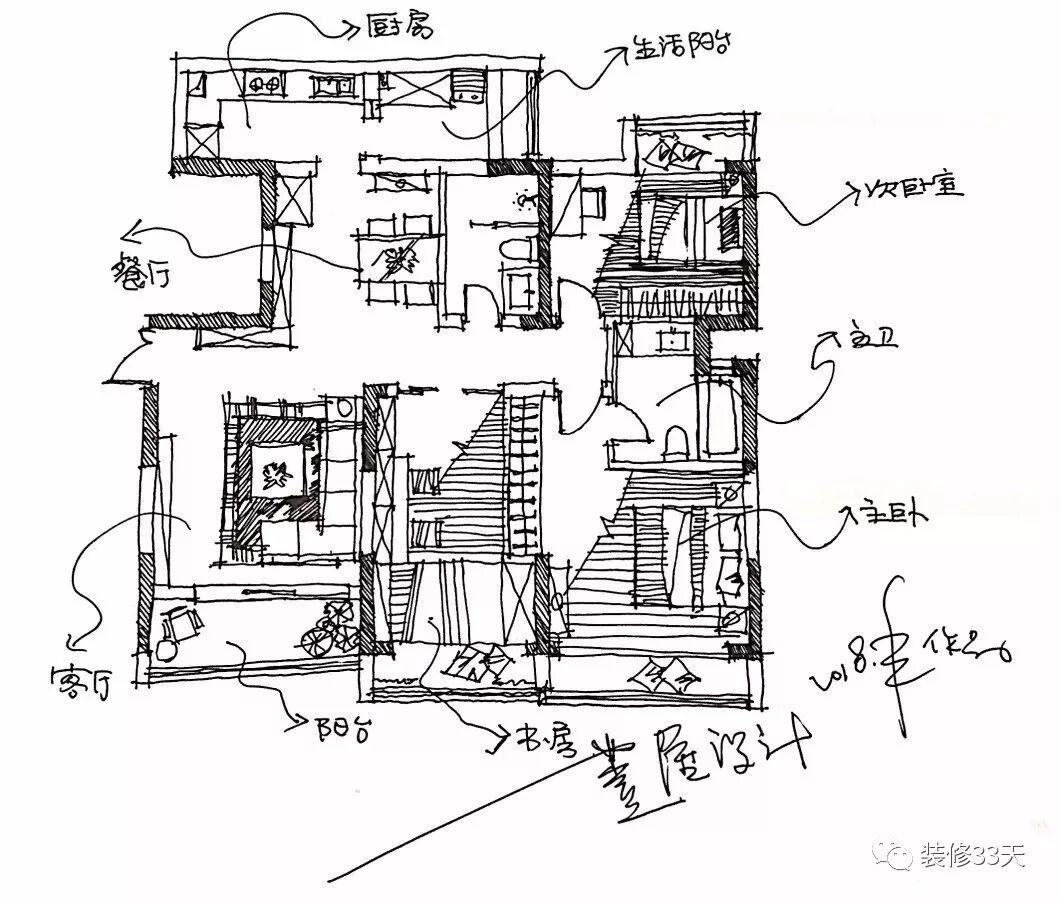 厨房
生活阳台
次卧室
餐厅
主卫
主卧
客厅
阳台
书房
2018.
作品
壹屋设计
装修33天